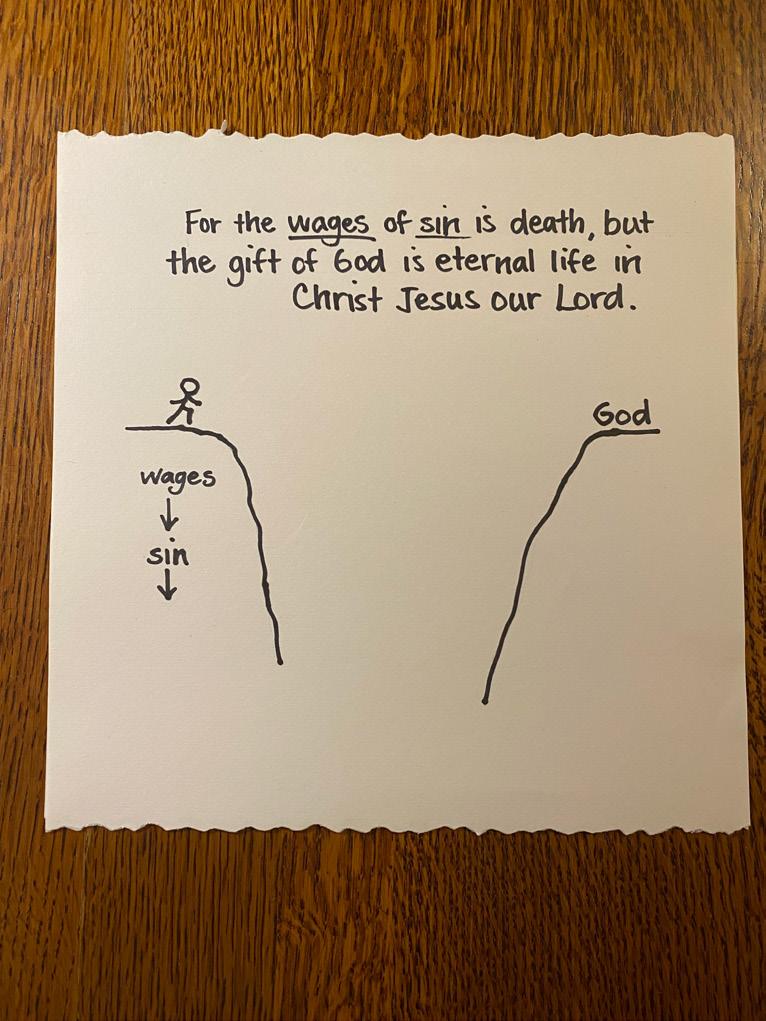 For the wages of sin is death, but
the gift of God is eternal life in
Christ Jesus our Lord.
God
wages
sin